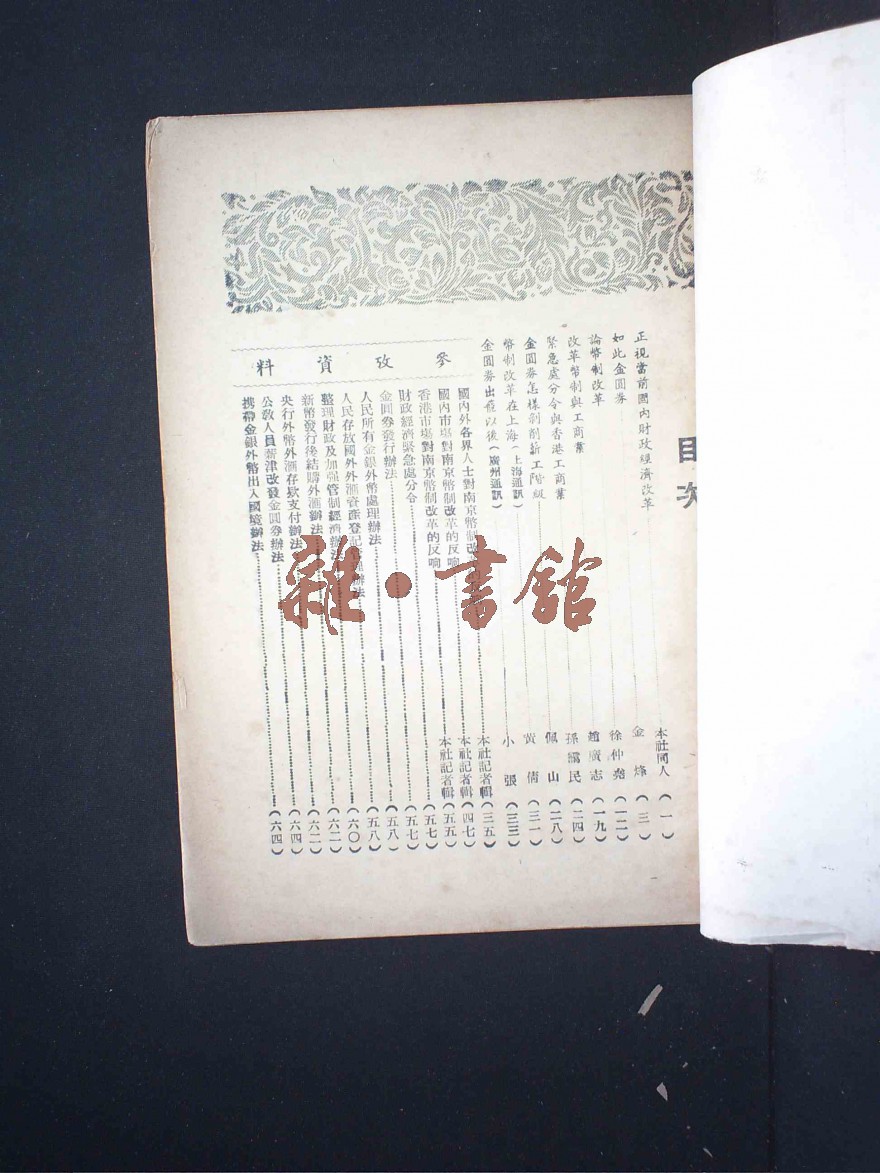 目次
正視當前國內財政經濟改革 本社同人(一)
如此金圓券 金烽(三)
論幣制改革 徐仲堯(一二)
改革幣制與工商業 趙廣志(一九)
緊急處分令與香港工商業 孫孺民(二四)
金圓券怎樣剝削薪工階級 佩山(二八)
幣制改革在上海(上海通訊) 黃倩(三一)
金圓券出籠以後(廣州通訊) 小張(三三)
參攷資料
國內外各界人士對南京幣制改 本社記者輯(三五)
國內市場對南京幣制改革的反响 本社記者輯(四七)
香港市場對南京幣制改革的反响 本社記者輯(五五)
財政經濟緊急處分令(五七)
金圓券發行辦法(五七)
人民所有金銀外幣處理辦法(五八)
人民存放國外外滙資產登記管理辦法(五八)
整理財政及加強管制經濟辦法(六〇)
新幣發行後結購外滙辦法(六二)
央行外幣外滙存款支付辦法(六二)
公教人員薪津改發金圓券辦法(六四)
携帶金銀外幣出入國境辦法(六四)
雜·書館